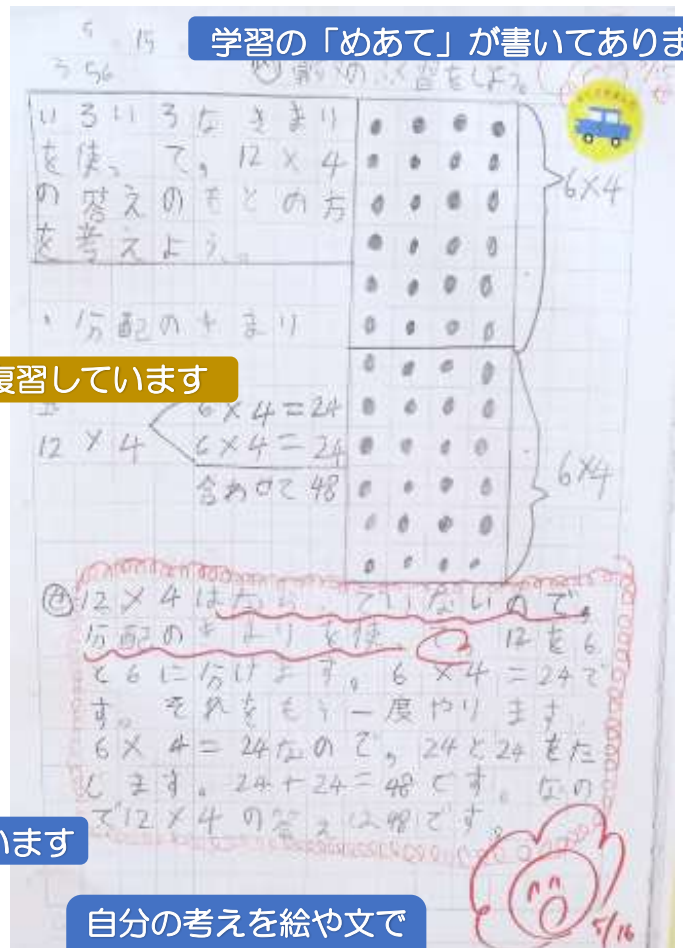 5 15
学習の「めあて」が書いてありま
いろいろなきまり
を使って，12×4
の答えのもとめ方
を考えよう。
6×4
・分配のきまり
复習しています
6×4＝24
12×4
6×4＝24
合わせて48
6×4
12×4は ていないので，
分配のきまりを使 12を6
と6に分けます。6×4＝24で
す。それをもう一度やります。
6×4＝24なので，24と24をた
します。24＋24＝48です。なの
で12×4の答えは48です。
います
自分の考えを絵や文で
5/16